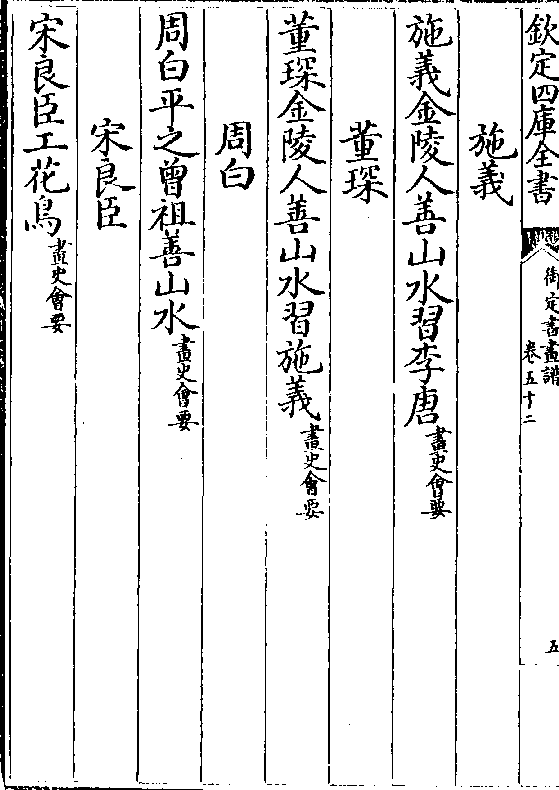 欽定四庫全書
御定書畫譜
卷五十二
五
施義
施義金陵人善山水習李唐畫史會要
董琛
董琛金陵人善山水習施義畫史會要
周白
周白平之曾祖善山水畫史會要
宋良臣
宋良臣工花鳥畫史會要